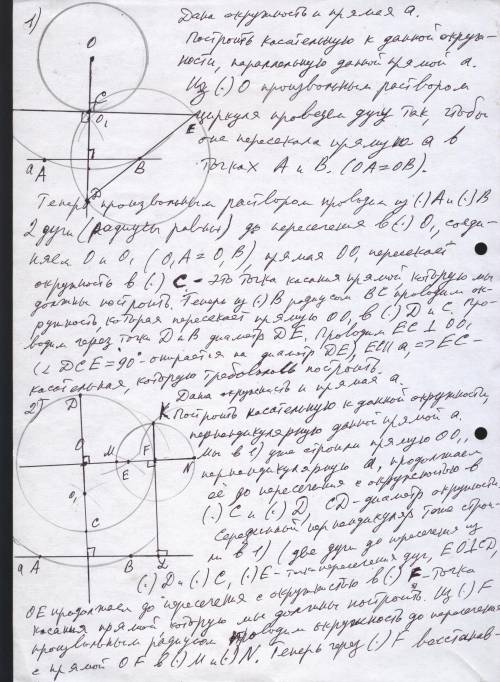 1)
Дана окружность и прямая а.
Построить касательную к данной окруж-
ности, параллельную данной прямой а.
Из (·) O произвольным раствором
циркуля проведем дугу так, чтобы
она пересекала прямую а в
точках А и В. (OA=OB).
Теперь произвольным раствором проводим из (·) А и (·) В
2 дуги (радиусы равны) до пересечения в (·) O₁ соеди-
няем O и O₁ (O₁A = O₁B), прямая OO₁ пересекает
окружность в (·) С. - это точка касания прямой, которую мы
должны построить. Теперь из (·) В радиусом ВС проводим ок-
ружность, которая пересекает прямую OO₁ в (·) D и С. Про-
водим через точки D и B диаметр DE. Проводим EC ⊥ OO₁
(∠ DCE = 90° - опирается на диаметр DE), EC || a => EC -
касательная, которую требовалось построить.
2)
Дана окружность и прямая а.
Построить касательную к данной окружности,
перпендикулярную данной прямой а.
Мы в 1) уже строили прямую OO₁,
перпендикулярную а, продолжаем
её до пересечения с окружностью в
(·) С и (·) D, CD - диаметр окружности.
Серединный перпендикуляр тоже строи-
ли в 1) (две дуги до пересечения из
(·) D и (·) С, (·) E - точка пересечения дуг, EO ⊥ CD
OE продолжаем до пересечения с окружностью в (·) F - точка
касания прямой которую мы должны построить. Из (·) F
произвольным радиусом проводим окружность до пересечения
с прямой OF в (·) M и (·) N. Теперь через (·) F восстанав-
O
C
O₁
E
a
A
B
D
D
K
O
M
F
E
N
O₁
C
a
A
B
L